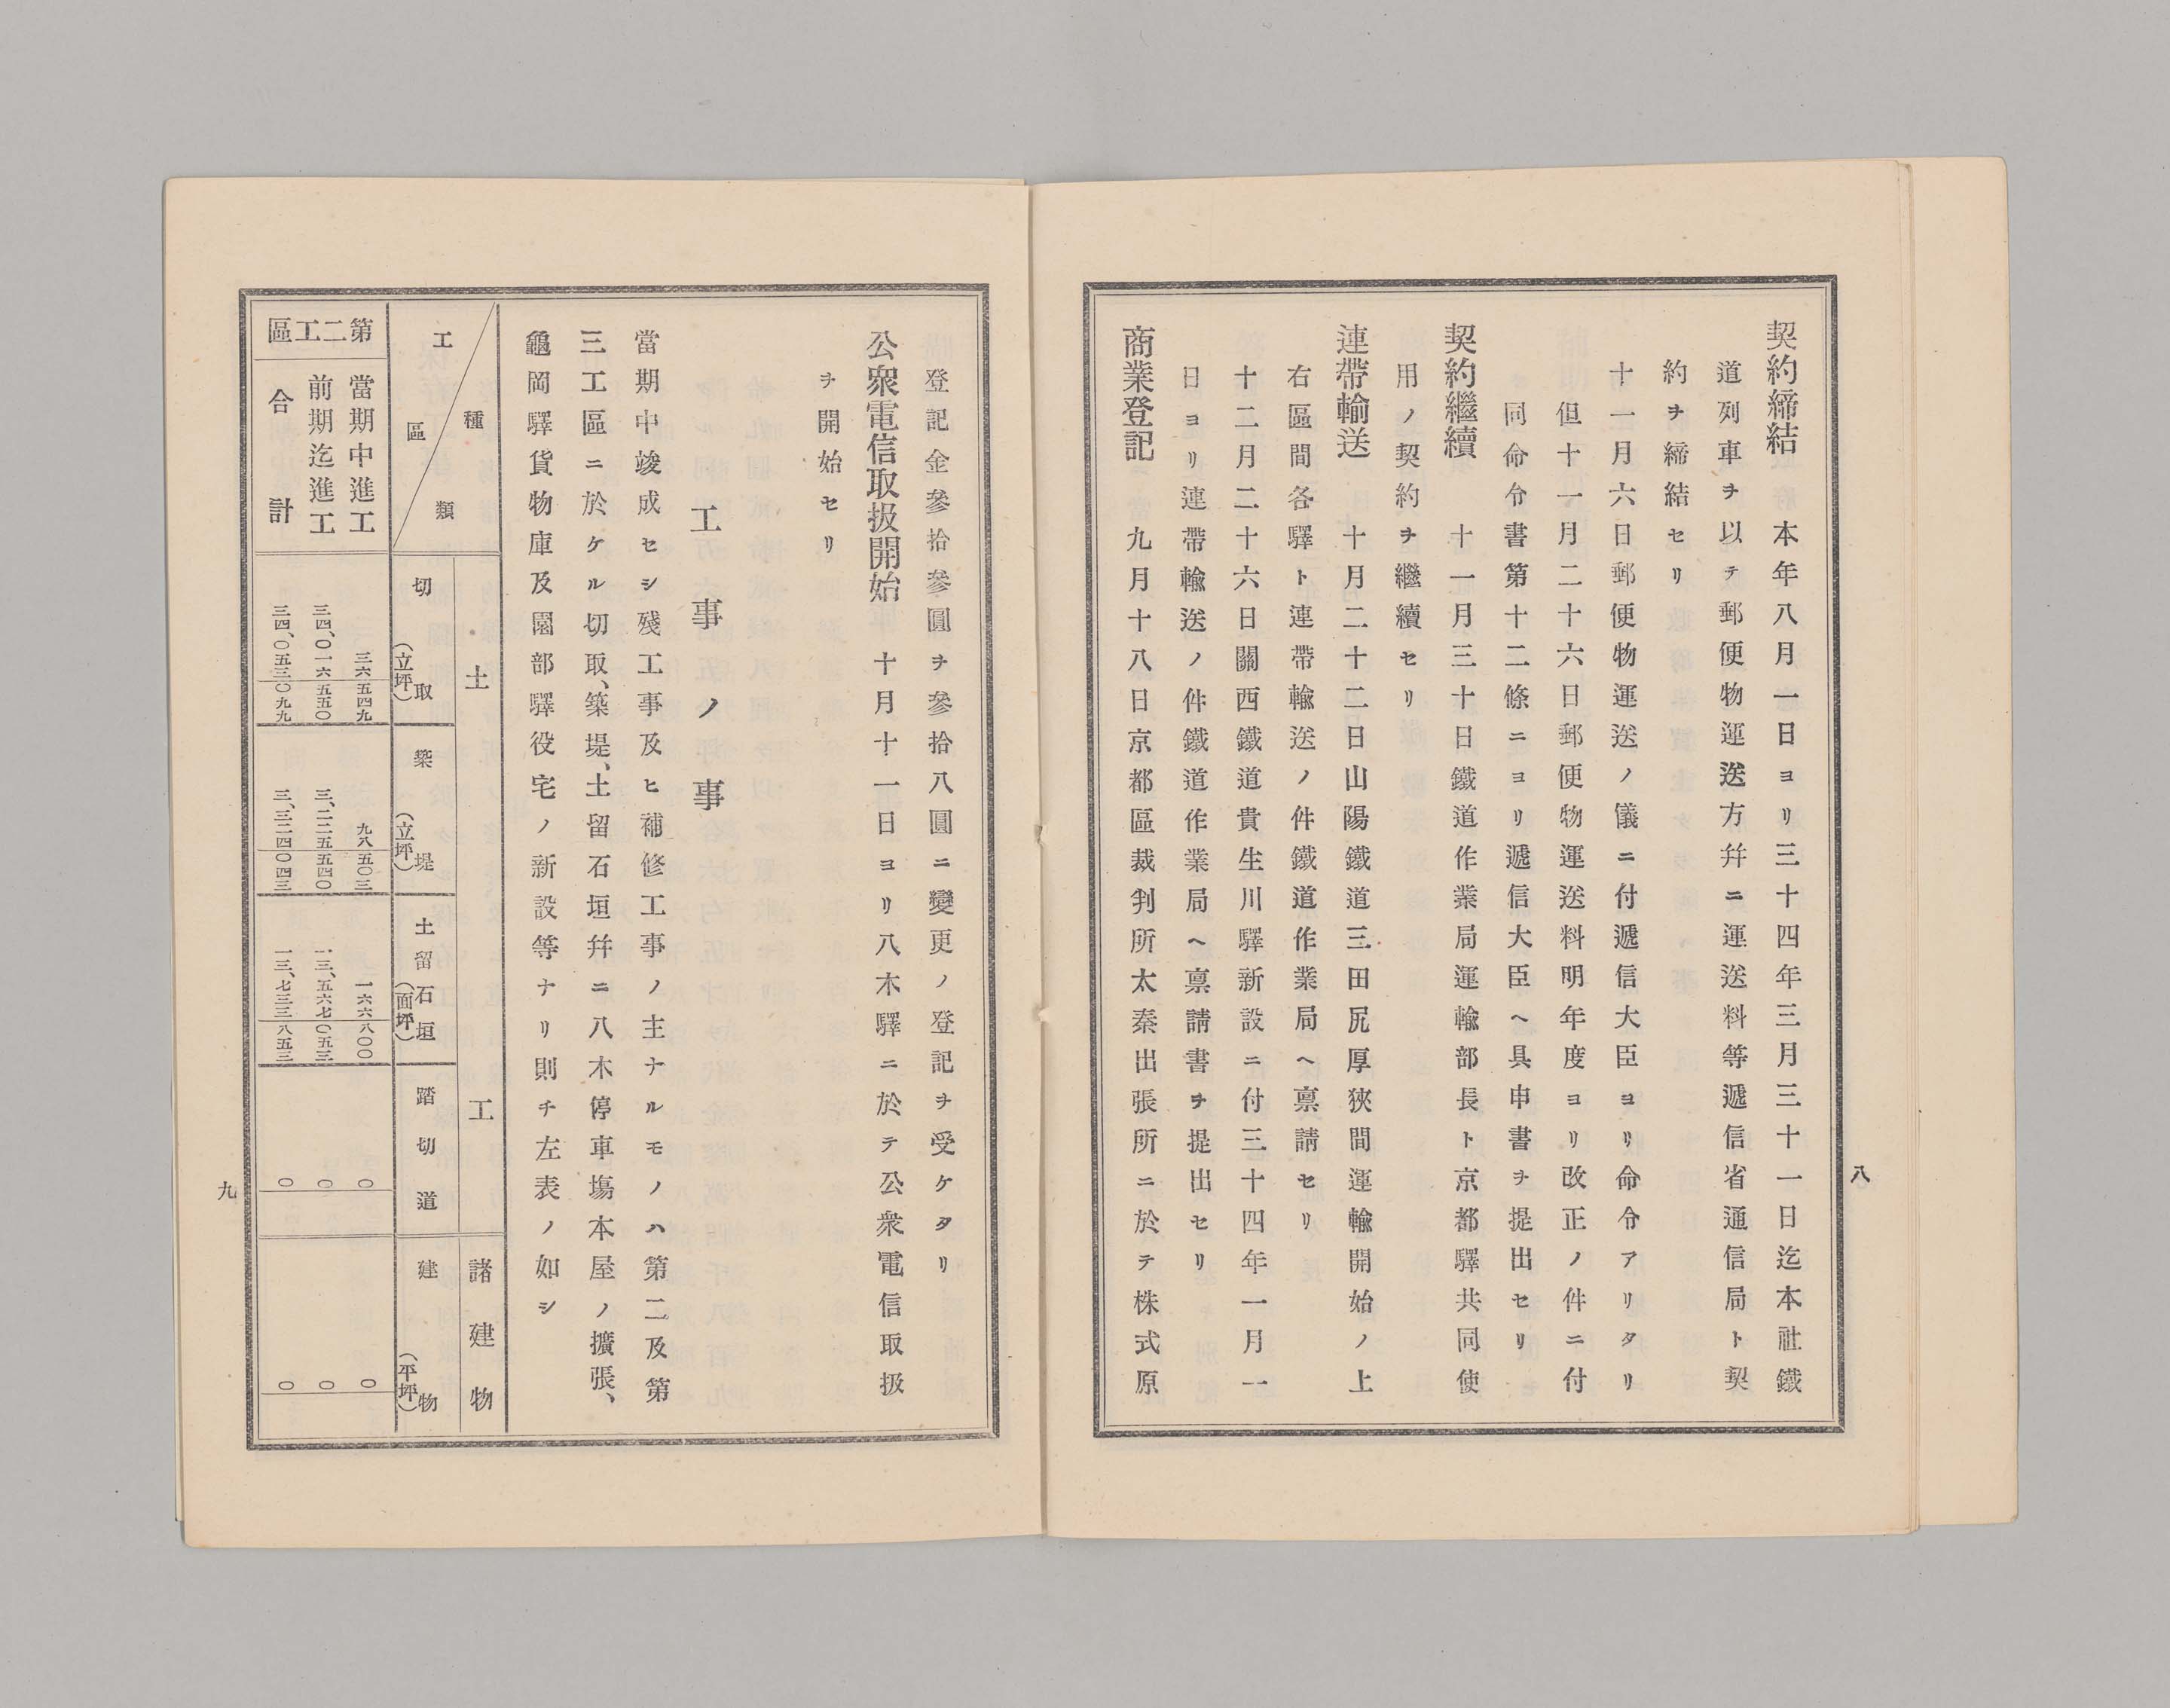 契約締結　本年八月一日ヨリ三十四年三月三十一日迄本社鐵
道列車ヲ以テ郵便物運送方幷ニ運送料等遞信省通信局ト契
約ヲ締結セリ
十一月六日郵便物運送ノ儀ニ付遞信大臣ヨリ命令アリタリ
但十一月二十六日郵便物運送料明年度ヨリ改正ノ件ニ付
同命令書第十二條ニヨリ遞信大臣ヘ具申書ヲ提出セリ
契約繼續　十一月三十日鐵道作業局運輸部長ト京都驛共同使
用ノ契約ヲ繼續セリ
連帶輸送　十月二十二日山陽鐵道三田尻厚狹間運輸開始ノ上
右區間各驛ト連帶輸送ノ件鐵道作業局ヘ稟請セリ
十二月二十六日關西鐵道貴生川驛新設ニ付三十四年一月一
日ヨリ連帶輸送ノ件鐵道作業局ヘ稟請書ヲ提出セリ
商業登記　九月十八日京都區裁判所太秦出張所ニ於テ株式原
八
登記金參拾參圓ヲ參拾八圓ニ變更ノ登記ヲ受ケタリ
公衆電信取扱開始　十月十一日ヨリ八木驛ニ於テ公衆電信取扱
ヲ開始セリ
工事ノ事
當期中竣成セシ殘工事及ヒ補修工事ノ主ナルモノハ第二及第
三工區ニ於ケル切取、築堤、土留石垣幷ニ八木停車塲本屋ノ擴張、
龜岡驛貨物庫及園部驛役宅ノ新設等ナリ則チ左表ノ如シ
工區　種類
土工　諸建物
切取（立坪）　築堤（立坪）　土留石垣（面坪）　踏切道　建物（平坪）
第二工區
當期中進工　三六五四九　九八五〇三　一六六八〇〇　〇　〇
前期迄進工　三四、〇一六五五〇　三、二二五五四〇　一三、五六七〇五三　〇　〇
合計　三四、〇五三〇九九　三、三二四〇四三　一三、七三三八五三　〇　〇
九